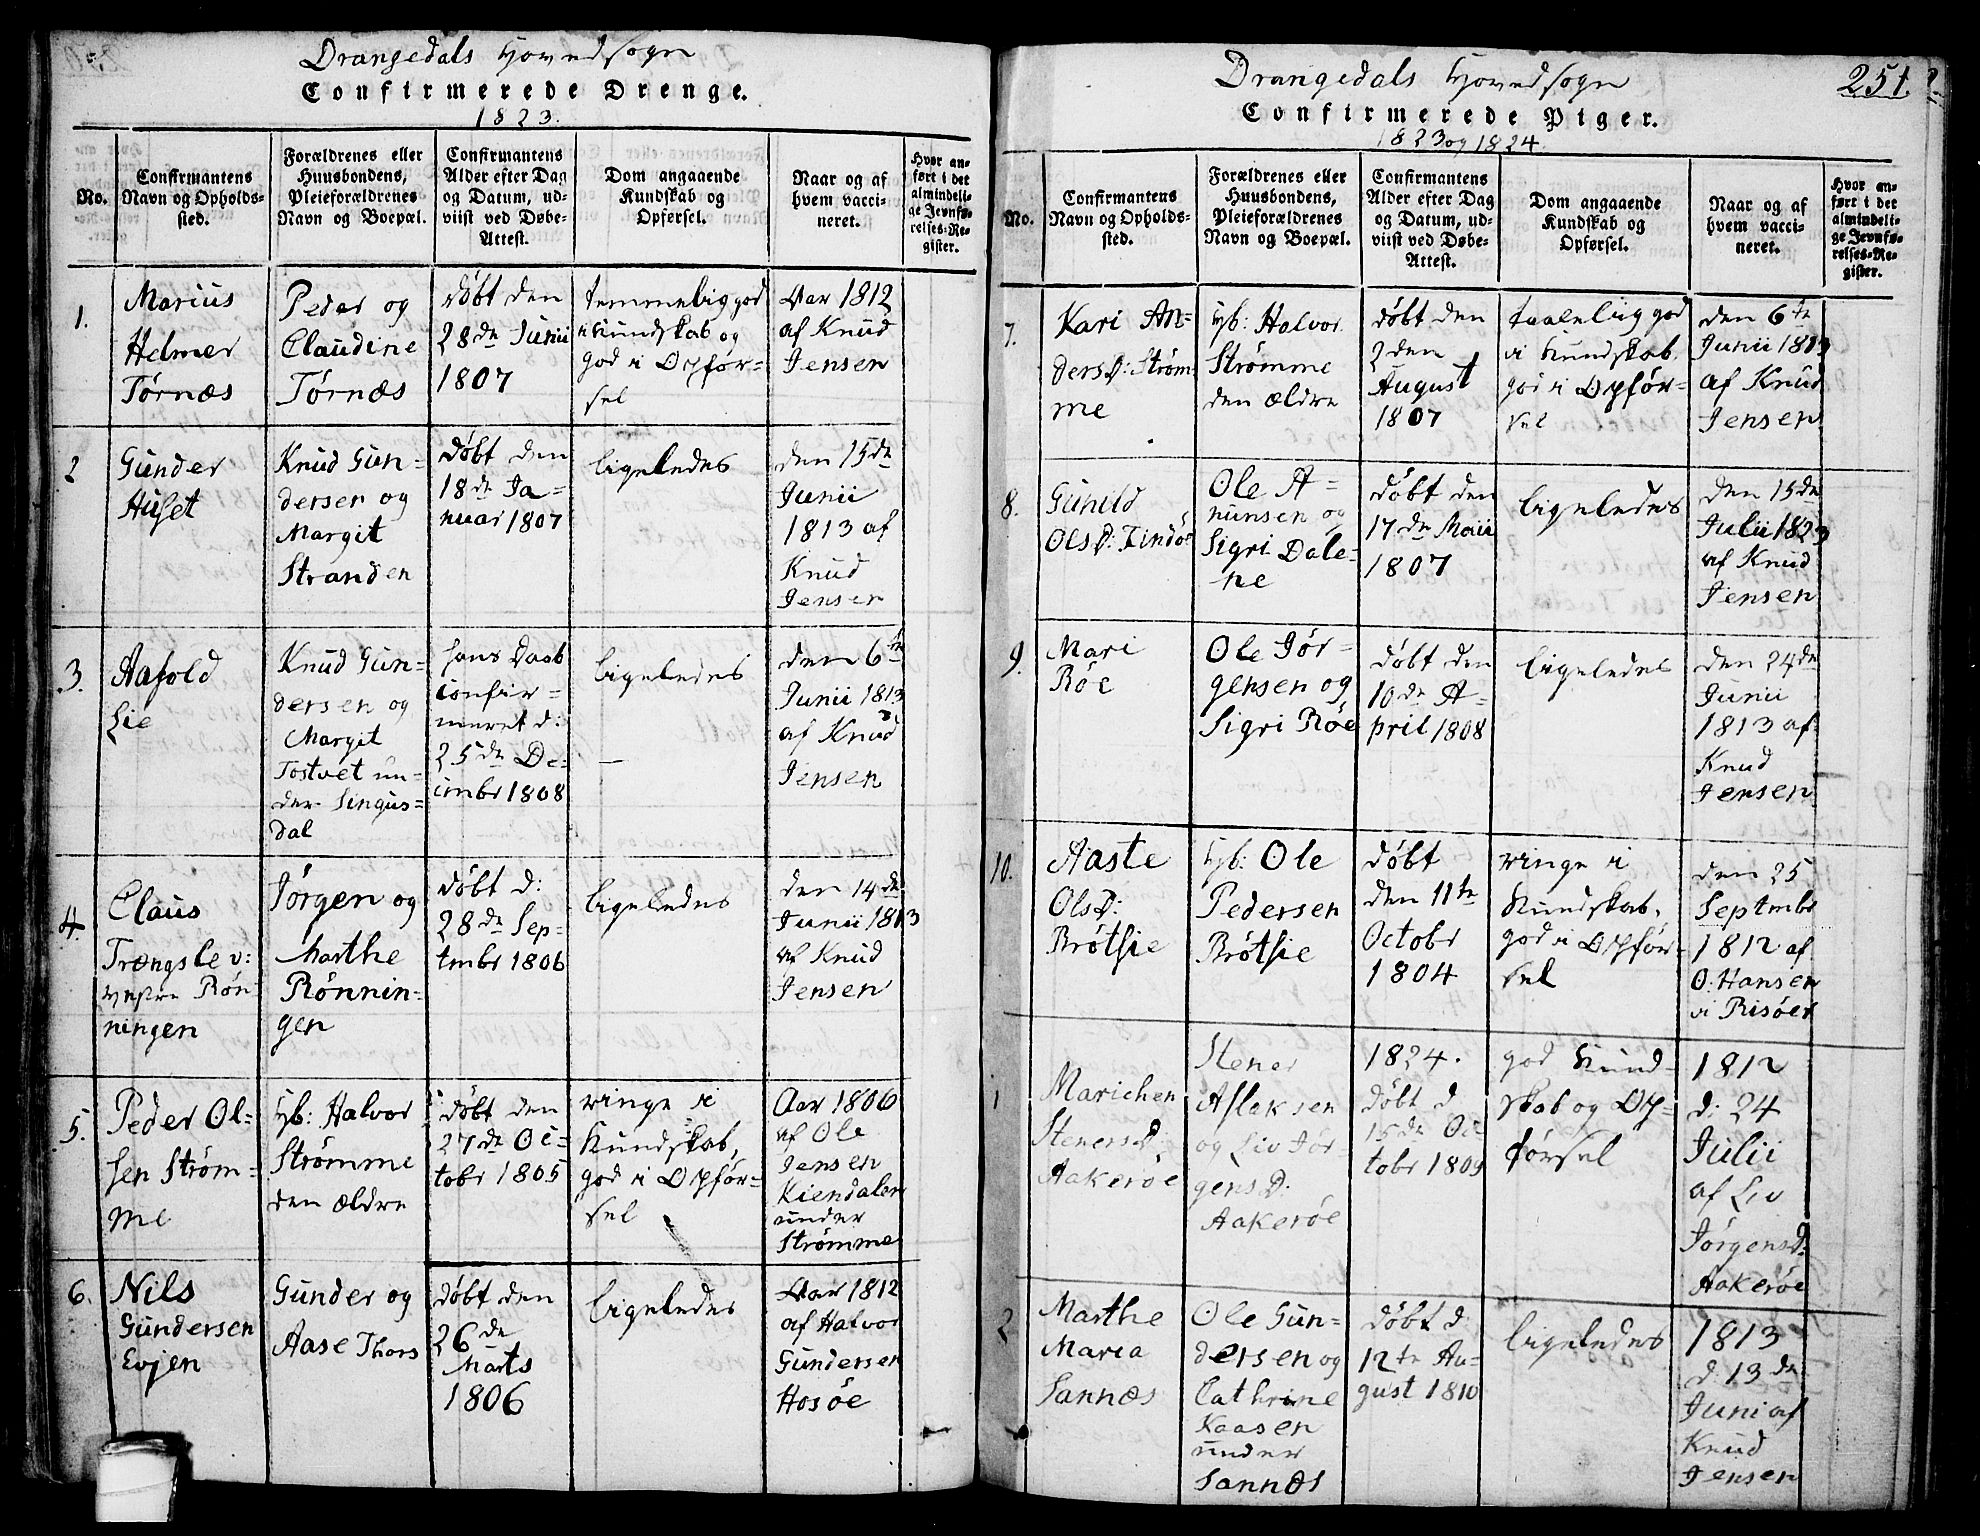 Drangedals Hovedsogn
Confirmerede Drenge.
1823.
No.
Confirmantens
Navn og Opholds-
sted.
Forældrenes eller
Huusbondens,
Pleieforældrenes
Navn og Boepæl.
Confirmantens
Alder efter Dag
og Datum, ud-
viist ved Døbe-
Attest.
Dom angaaende
Kundskab og
Opførsel.
Naar og af
hvem vacci-
neret.
Hvor an-
ført i det
almindeli-
ge Jevnfø-
relses-Re-
gister.
1.
Marius
Helmer
Tørnæs
Peder og
Claudine
Tørnæs
døbt den
28de Junii
1807
temmelig god
i Kundskab og
god i Opfør-
sel
Aar 1812
af Knud
Jensen
2
Gunder
Huset
Knud Gun-
dersen og
Margit
Stranden
døbt den
18de Ja-
nuar 1807
ligeledes
den 15de
Junii
1813 af
Knud
Jensen
3.
Aasold
Lie
Knud Gun-
dersen og
Margit
Tostvet un-
der Lingus-
dal
hans Daab
confir-
meret d:
25de De-
cembr 1808
ligeledes
—
den 6te
Junii 1813
af Knud
Jensen
4.
Claus
Trængslev:
vestre Røn-
ningen
Jørgen og
Marthe
Rønnin-
gen
døbt d:
28de Sep-
tembr 1806
ligeledes
den 14de
Junii 1813
af Knud
Jensen
5.
Peder Ol-
sen Strøm-
me
hb: Halvor
Strømme
den ældre
døbt den
27de Oc-
tobr 1805
ringe i
Kundskab,
god i Opfør-
sel
Aar 1806
af Ole
Jensen
Kiendalen
under
Strømme
6.
Nils
Gundersen
Evjen
Gunder og
Aase Thors
døbt den
26de
Marts
1806
ligeledes
Aar 1812
af Halvor
Gundersen
Hosøe
Drangedals Hovedsogn
251.
Confirmerede Piger.
1823 og 1824.
No.
Confirmantens
Navn og Opholds-
sted.
Forældrenes eller
Huusbondens,
Pleieforældrenes
Navn og Boepæl.
Confirmantens
Alder efter Dag
og Datum, ud-
viist ved Døbe-
Attest.
Dom angaaende
Kundskab og
Opførsel.
Naar og af
hvem vacci-
neret.
Hvor an-
ført i det
almindeli-
ge Jevnfø-
relses-Re-
gister.
7.
Kari An-
dersD: Strøm-
me
hb: Halvor
Strømme
den ældre
døbt den
2den
August
1807
taalelig god
i Kundskab.
god i Opfør-
sel
den 6te
Junii 1813
af Knud
Jensen
8.
Gunild
OlsD: Findøe
Ole A-
nunsen og
Sigri Dale-
ne
døbt den
17de Maii
1807
ligeledes
den 15de
Julii 1823
af Knud
Jensen
9.
Mari
Røe
Ole Jør-
gensen og
Sigri Røe
døbt den
10de A-
pril 1808
ligeledes
den 24de
Junii
1813 af
Knud
Jensen
10.
Aaste
OlsD:
Brøtsie
hb: Ole
Pedersen
Brøtsie
døbt
den 11te
Octobr
1804
ringe i
Kundskab,
god i Opfør-
sel
den 25
Septmbr
1812 af
O: Hansen
i Risøer
1
Marichen
StenersD:
Aakerøe
Stener
Aslaksen
og Liv Jør-
gensD.
Aakerøe
1824.
døbt d
15de Oc-
tobr 1809
god Kund-
skab og Op-
førsel
1812
d: 24
Julii
af Liv
JørgensD:
Aakerøe
2
Marthe
Maria
Sannæs
Ole Gun-
dersen og
Cathrine
Kaasen
under
Sannæs
døbt d
12te Au-
gust 1810
ligeledes
1813
d. 13de
Juni af
Knud
Jensen